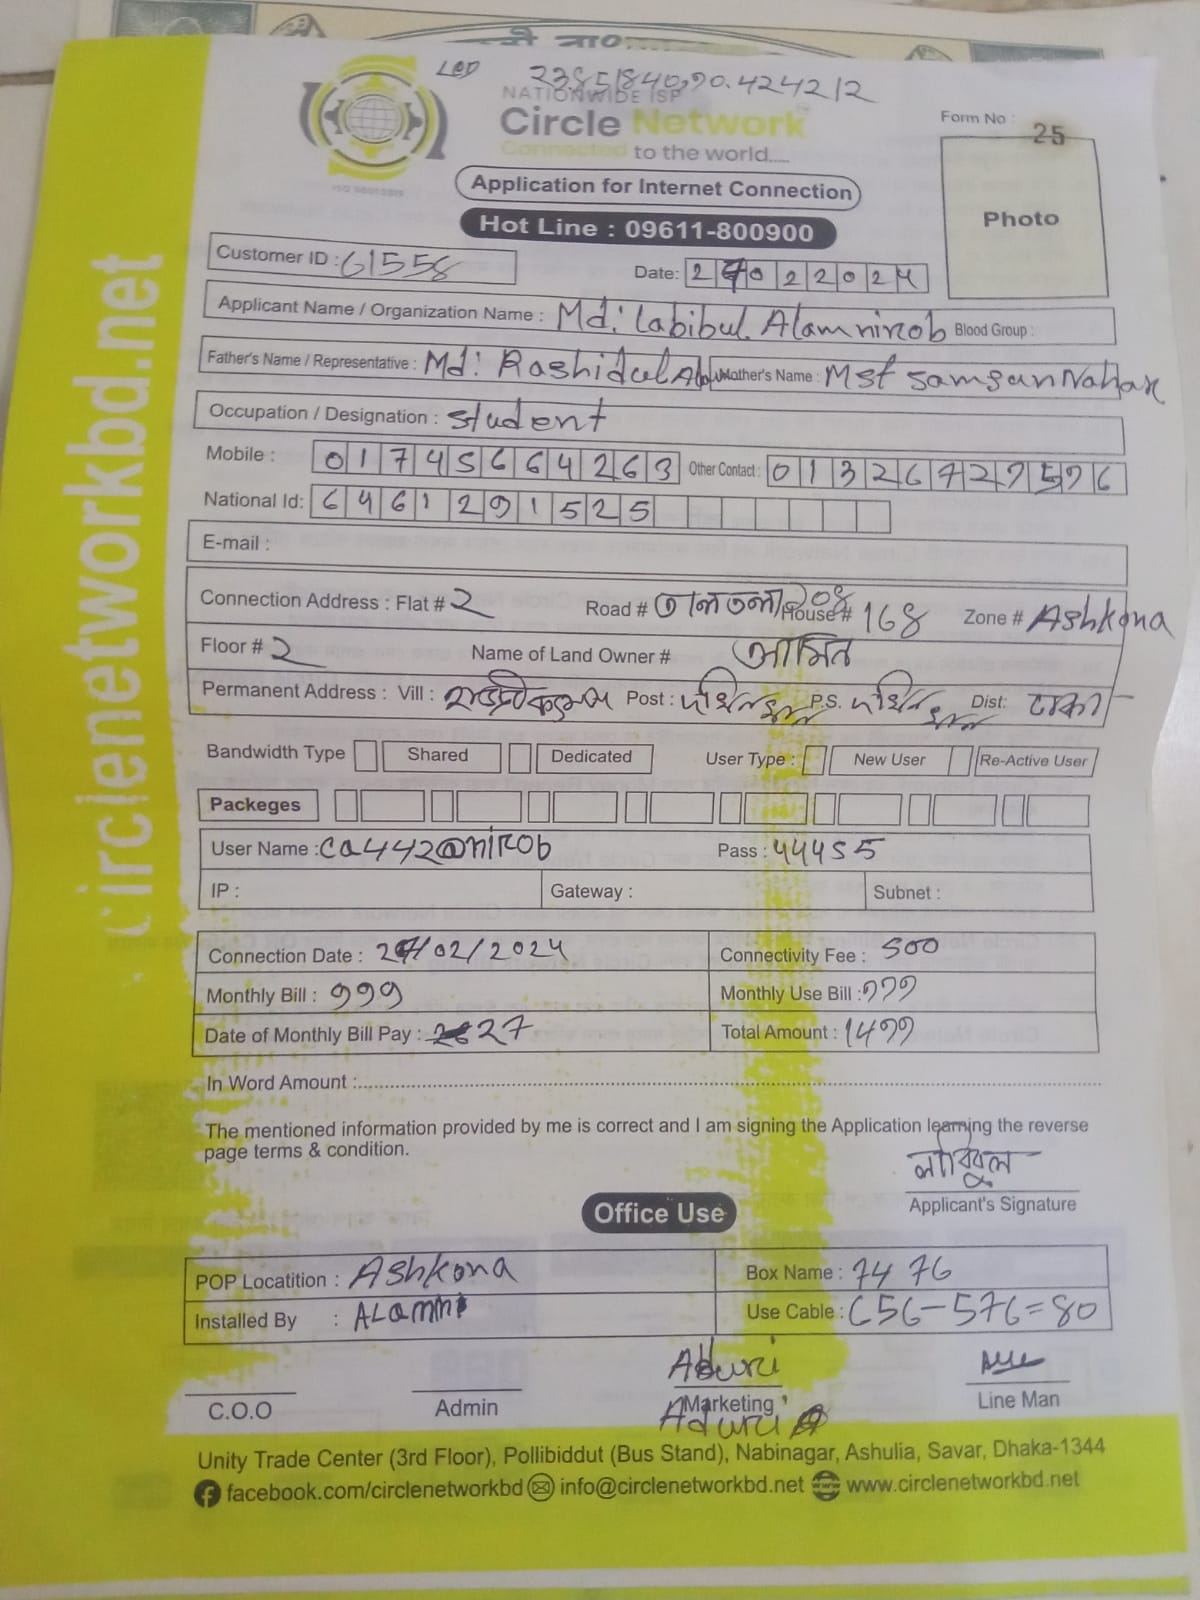 LOD 23.851840,90.424212
NATIONWIDE ISP
Circle Network
Connected to the world.....
ISO 9001:2015
Form No : 25
Photo
Application for Internet Connection
Hot Line : 09611-800900
Customer ID : 61558
Date: 27022024
Applicant Name / Organization Name : Md: Labibul Alam nirob Blood Group :
Father's Name / Representative : Md: Rashidul Alam Mother's Name : Mst Samsun Nahar
Occupation / Designation : Student
Mobile : 01745664263 Other Contact : 01326727576
National Id: 6461291525
E-mail :
Connection Address : Flat # 2 Road # তালতলা House # 168 Zone # Ashkona
Floor # 2 Name of Land Owner # আমিন
Permanent Address : Vill : Post : দক্ষিনখান P.S. দক্ষিনখান Dist: ঢাকা
Bandwidth Type Shared Dedicated User Type : New User Re-Active User
Packeges
User Name : ca442@nirob Pass : 44455
IP : Gateway : Subnet :
Connection Date : 27/02/2024 Connectivity Fee : 500
Monthly Bill : 999 Monthly Use Bill : 999
Date of Monthly Bill Pay : 27 Total Amount : 1499
In Word Amount :
The mentioned information provided by me is correct and I am signing the Application learning the reverse
page terms & condition.
লাবিবুল
Applicant's Signature
Office Use
POP Locatition : Ashkona Box Name : 7476
Installed By : ALamin Use Cable : 656-576=80
Aduri
C.O.O Admin Marketing Line Man
Aduri
Unity Trade Center (3rd Floor), Pollibiddut (Bus Stand), Nabinagar, Ashulia, Savar, Dhaka-1344
facebook.com/circlenetworkbd info@circlenetworkbd.net www.circlenetworkbd.net
circlenetworkbd.net